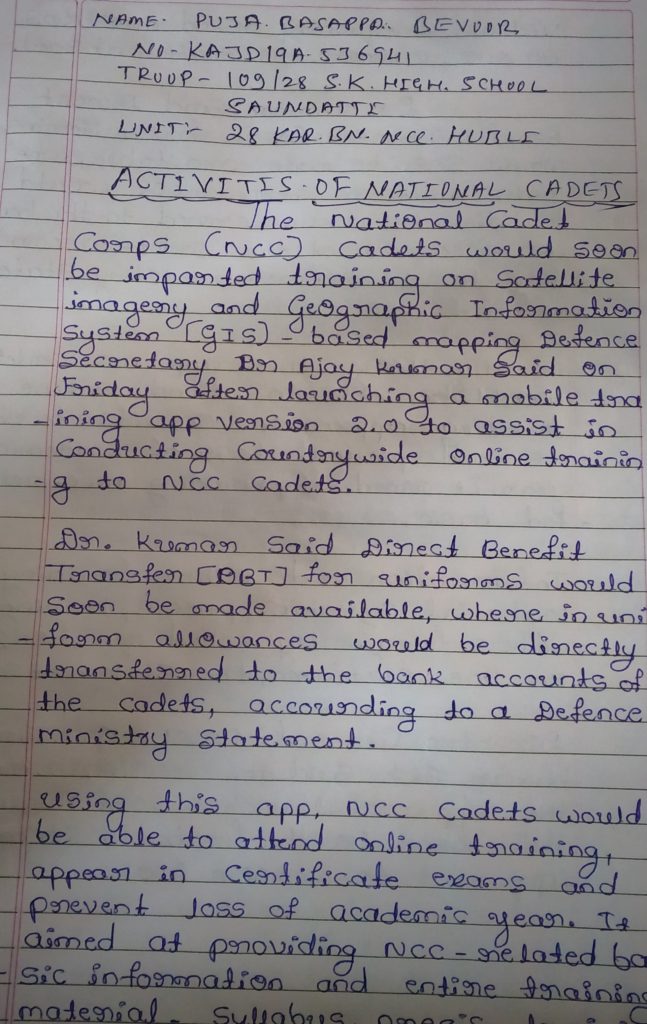 NAME- PUJA. BASAPPA. BEVOOR
NO - KAJD19A. 536941
TROOP - 109/28 S.K. HIGH. SCHOOL
SAUNDATTI
UNIT:- 28 KAR. BN. NCC. HUBLI
ACTIVITIS. OF NATIONAL CADETS
The National Cadet
Corps (NCC) Cadets would soon
be imparted training on Satellite
imagery and Geographic Information
System [GIS) - based mapping Defence
Secretary Dr Ajay Kumar Said on
Friday after launching a mobile tra
-ining app version 2.0 to assist in
Conducting Countrywide Online trainin
-g to NCC Cadets.
Dr. Kumar Said Direct Benefit
Transfer [DBT] for uniforms would
soon be made available, where in uni
-form allowances would be directly
transferred to the bank accounts of
the cadets, accounding to a Defence
ministry Statement.
using this app, NCC Cadets would
be able to attend online training,
appear in Certificate exams and
prevent loss of academic year. It
aimed at providing NCC - related ba
-sic information and entire training
material. Syllabus